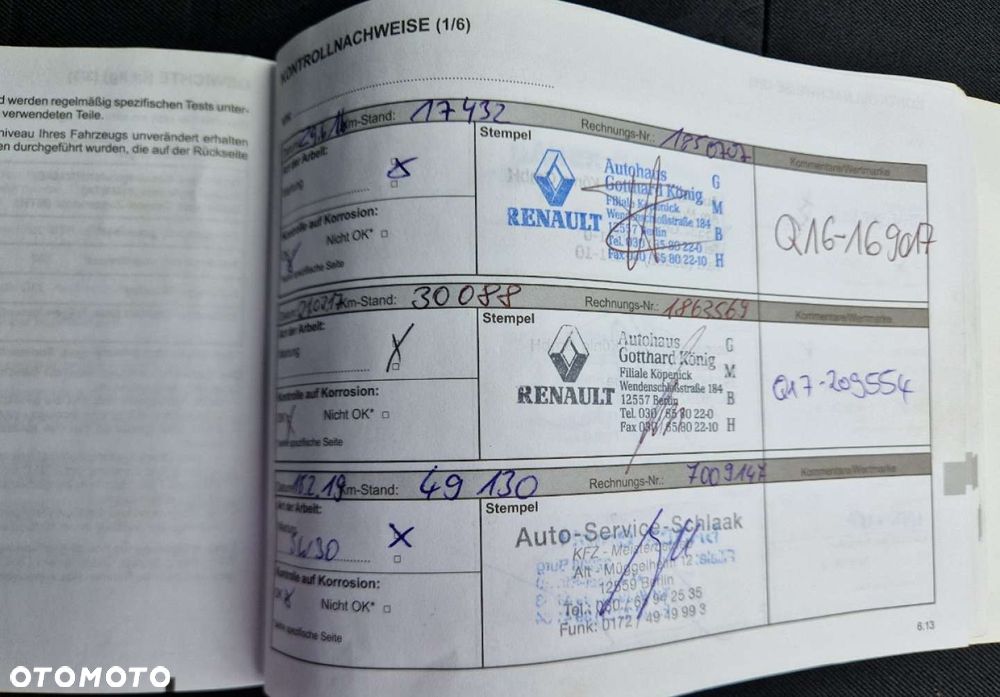 d werden regelmäßig spezifischen Tests unter-
verwendeten Teile.
niveau Ihres Fahrzeugs unverändert erhalten
en durchgeführt wurden, die auf der Rückseite
KONTROLLNACHWEISE (1/6)
29.6.16 Km-Stand: 17432 Rechnungs-Nr.: 1850707 Kommentare/Wertmarke
Art der Arbeit:
Wartung
Stempel
RENAULT
Autohaus G
Gotthard König
Filiale Köpenick M
Wendenschloßstraße 184
12557 Berlin B
Tel. 030 / 65 80 22-0
Fax 030 / 65 80 22-10 H
Q16-169017
Kontrolle auf Korrosion:
Nicht OK*
Siehe spezifische Seite
Km-Stand: 30088 Rechnungs-Nr.: 1863569 Kommentare/Wertmarke
Art der Arbeit:
Wartung
Stempel
RENAULT
Autohaus G
Gotthard König
Filiale Köpenick M
Wendenschloßstraße 184
12557 Berlin B
Tel. 030 / 65 80 22-0
Fax 030 / 65 80 22-10 H
Q17-209554
Kontrolle auf Korrosion:
Nicht OK*
Siehe spezifische Seite
Km-Stand: 49 130 Rechnungs-Nr.: 7009147 Kommentare/Wertmarke
Art der Arbeit:
Wartung
5W30
Stempel
Auto-Service-Schlaak
KFZ - Meisterbetrieb
Alt - Müggelheim 12
12559 Berlin
Tel.: 030 / 65 94 25 35
Funk: 0172 / 49 49 99 3
Kontrolle auf Korrosion:
OK Nicht OK*
Siehe spezifische Seite
6.13
OTOMOTO